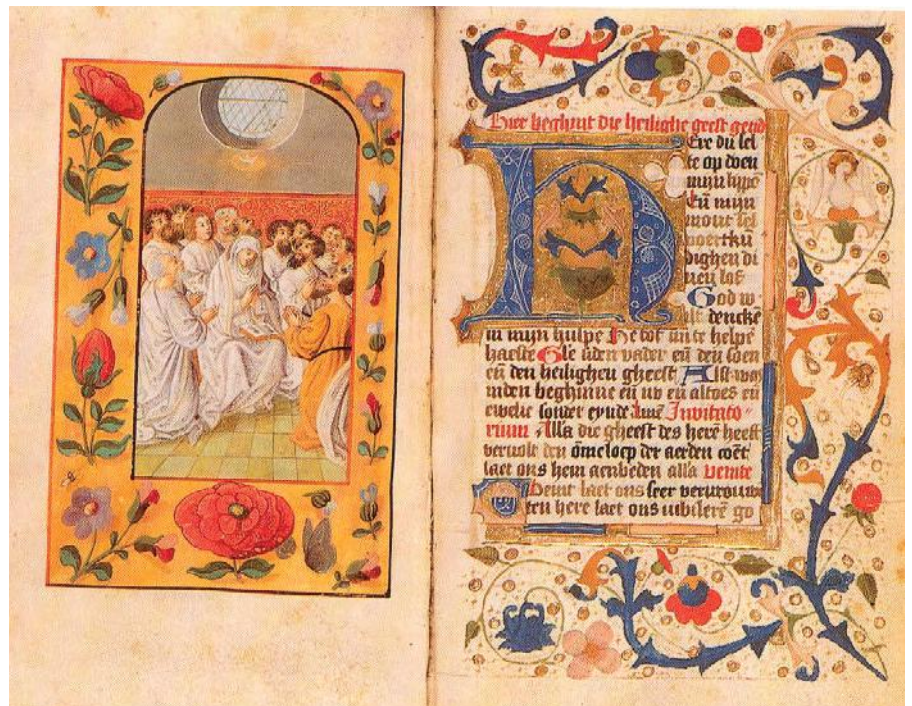 Hier beghint die heilighe geest getid
Ere du sel
te op doen
mijn lippē
Eñ mijn
mont sel
voertkū
dighen di
nen lof
God w
dencke
in mijn hulpe He tot mi te helpē
haeste Glē uden vader eñ den soen
eñ den heilighen gheest Alst was
inden beghinne eñ nv eñ altoes eñ
ewelic sonder eynde Amē Invitato-
rium Alla die gheest des herē heeft
vervolt den ōmeloep der aerden coēt
laet ons hem aenbeden alla venite
laet ons seer vervrouwē
ten here laet ons iubilerē go